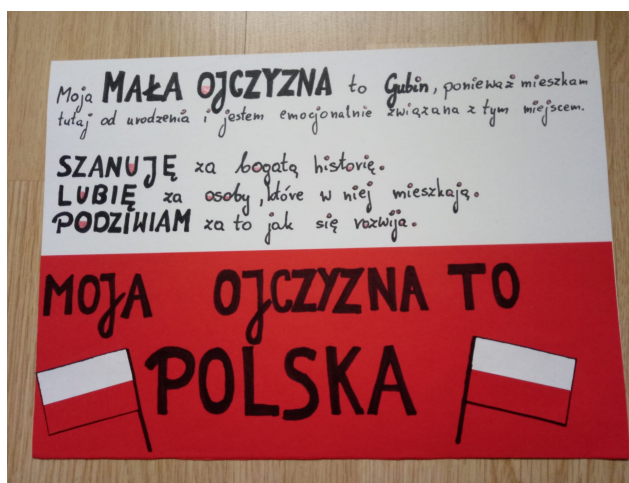 Moja MAŁA OJCZYZNA to Gubin, ponieważ mieszkam
tutaj od urodzenia i jestem emocjonalnie związana z tym miejscem.
SZANUJĘ za bogatą historię.
LUBIĘ za osoby, które w niej mieszkają.
PODZIWIAM za to jak się rozwija.
MOJA OJCZYZNA TO
POLSKA